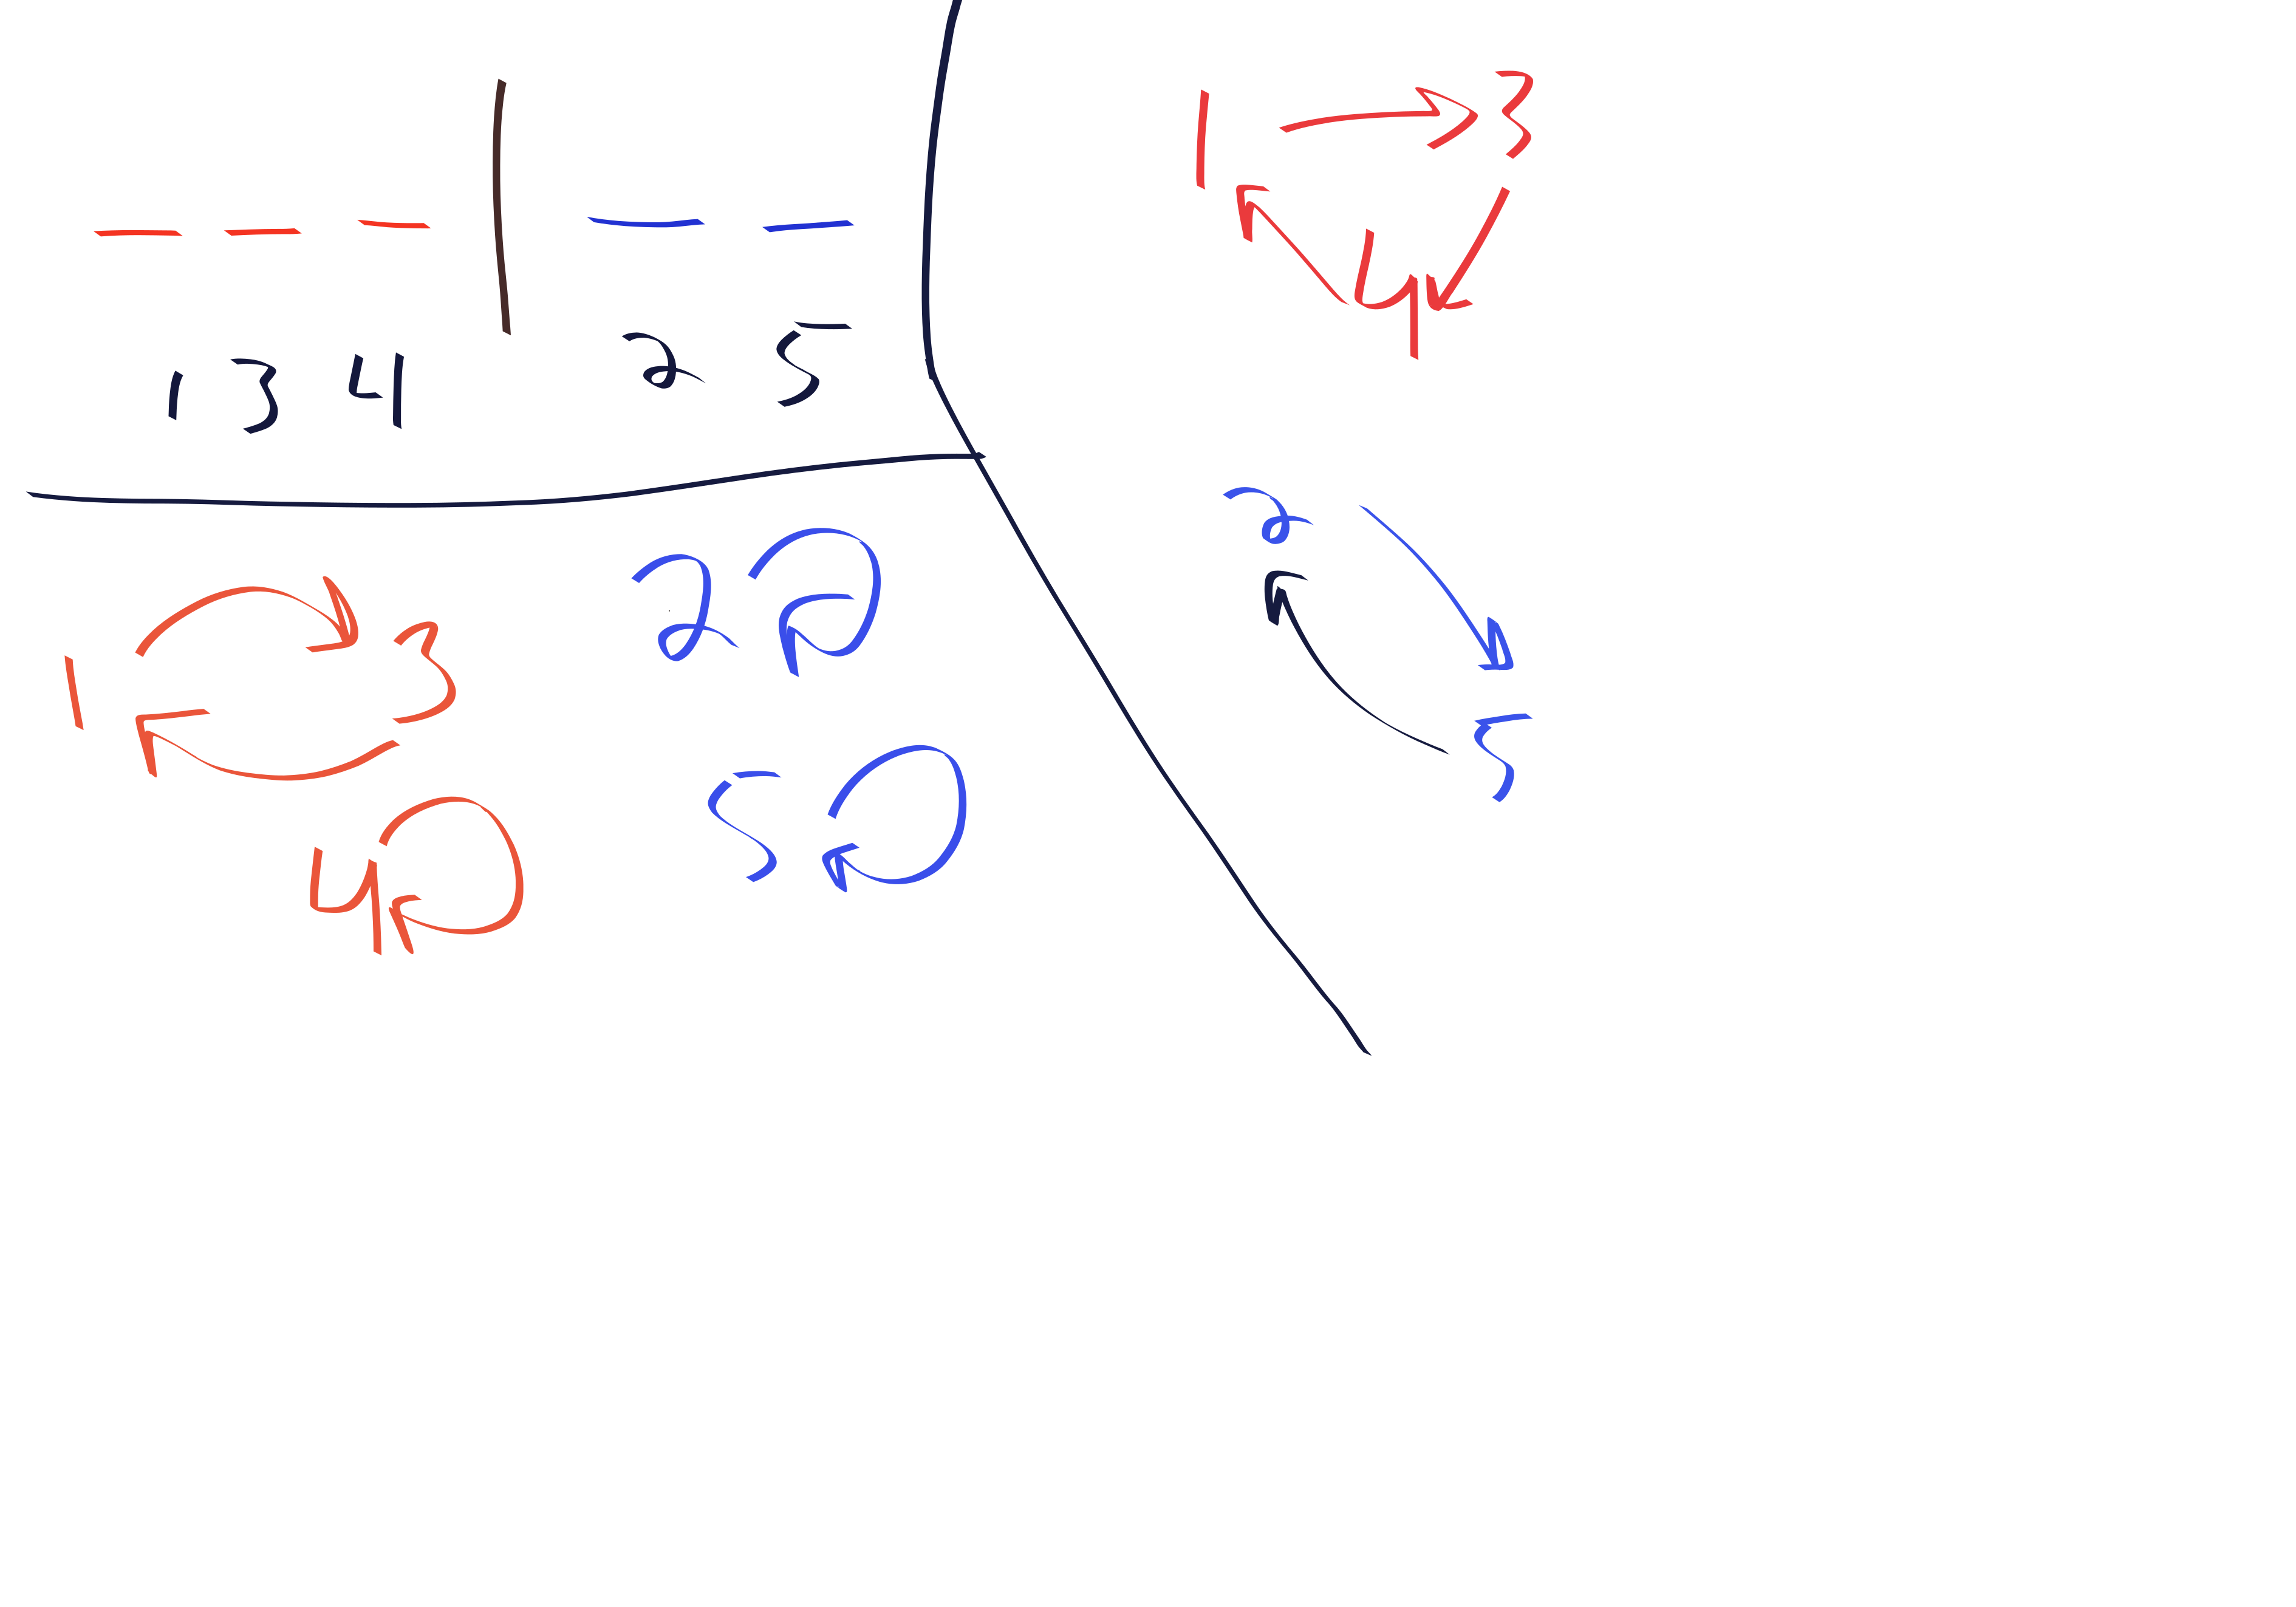 1 3 4 2 5
1 3
4
2
5
1 3
4
2
5